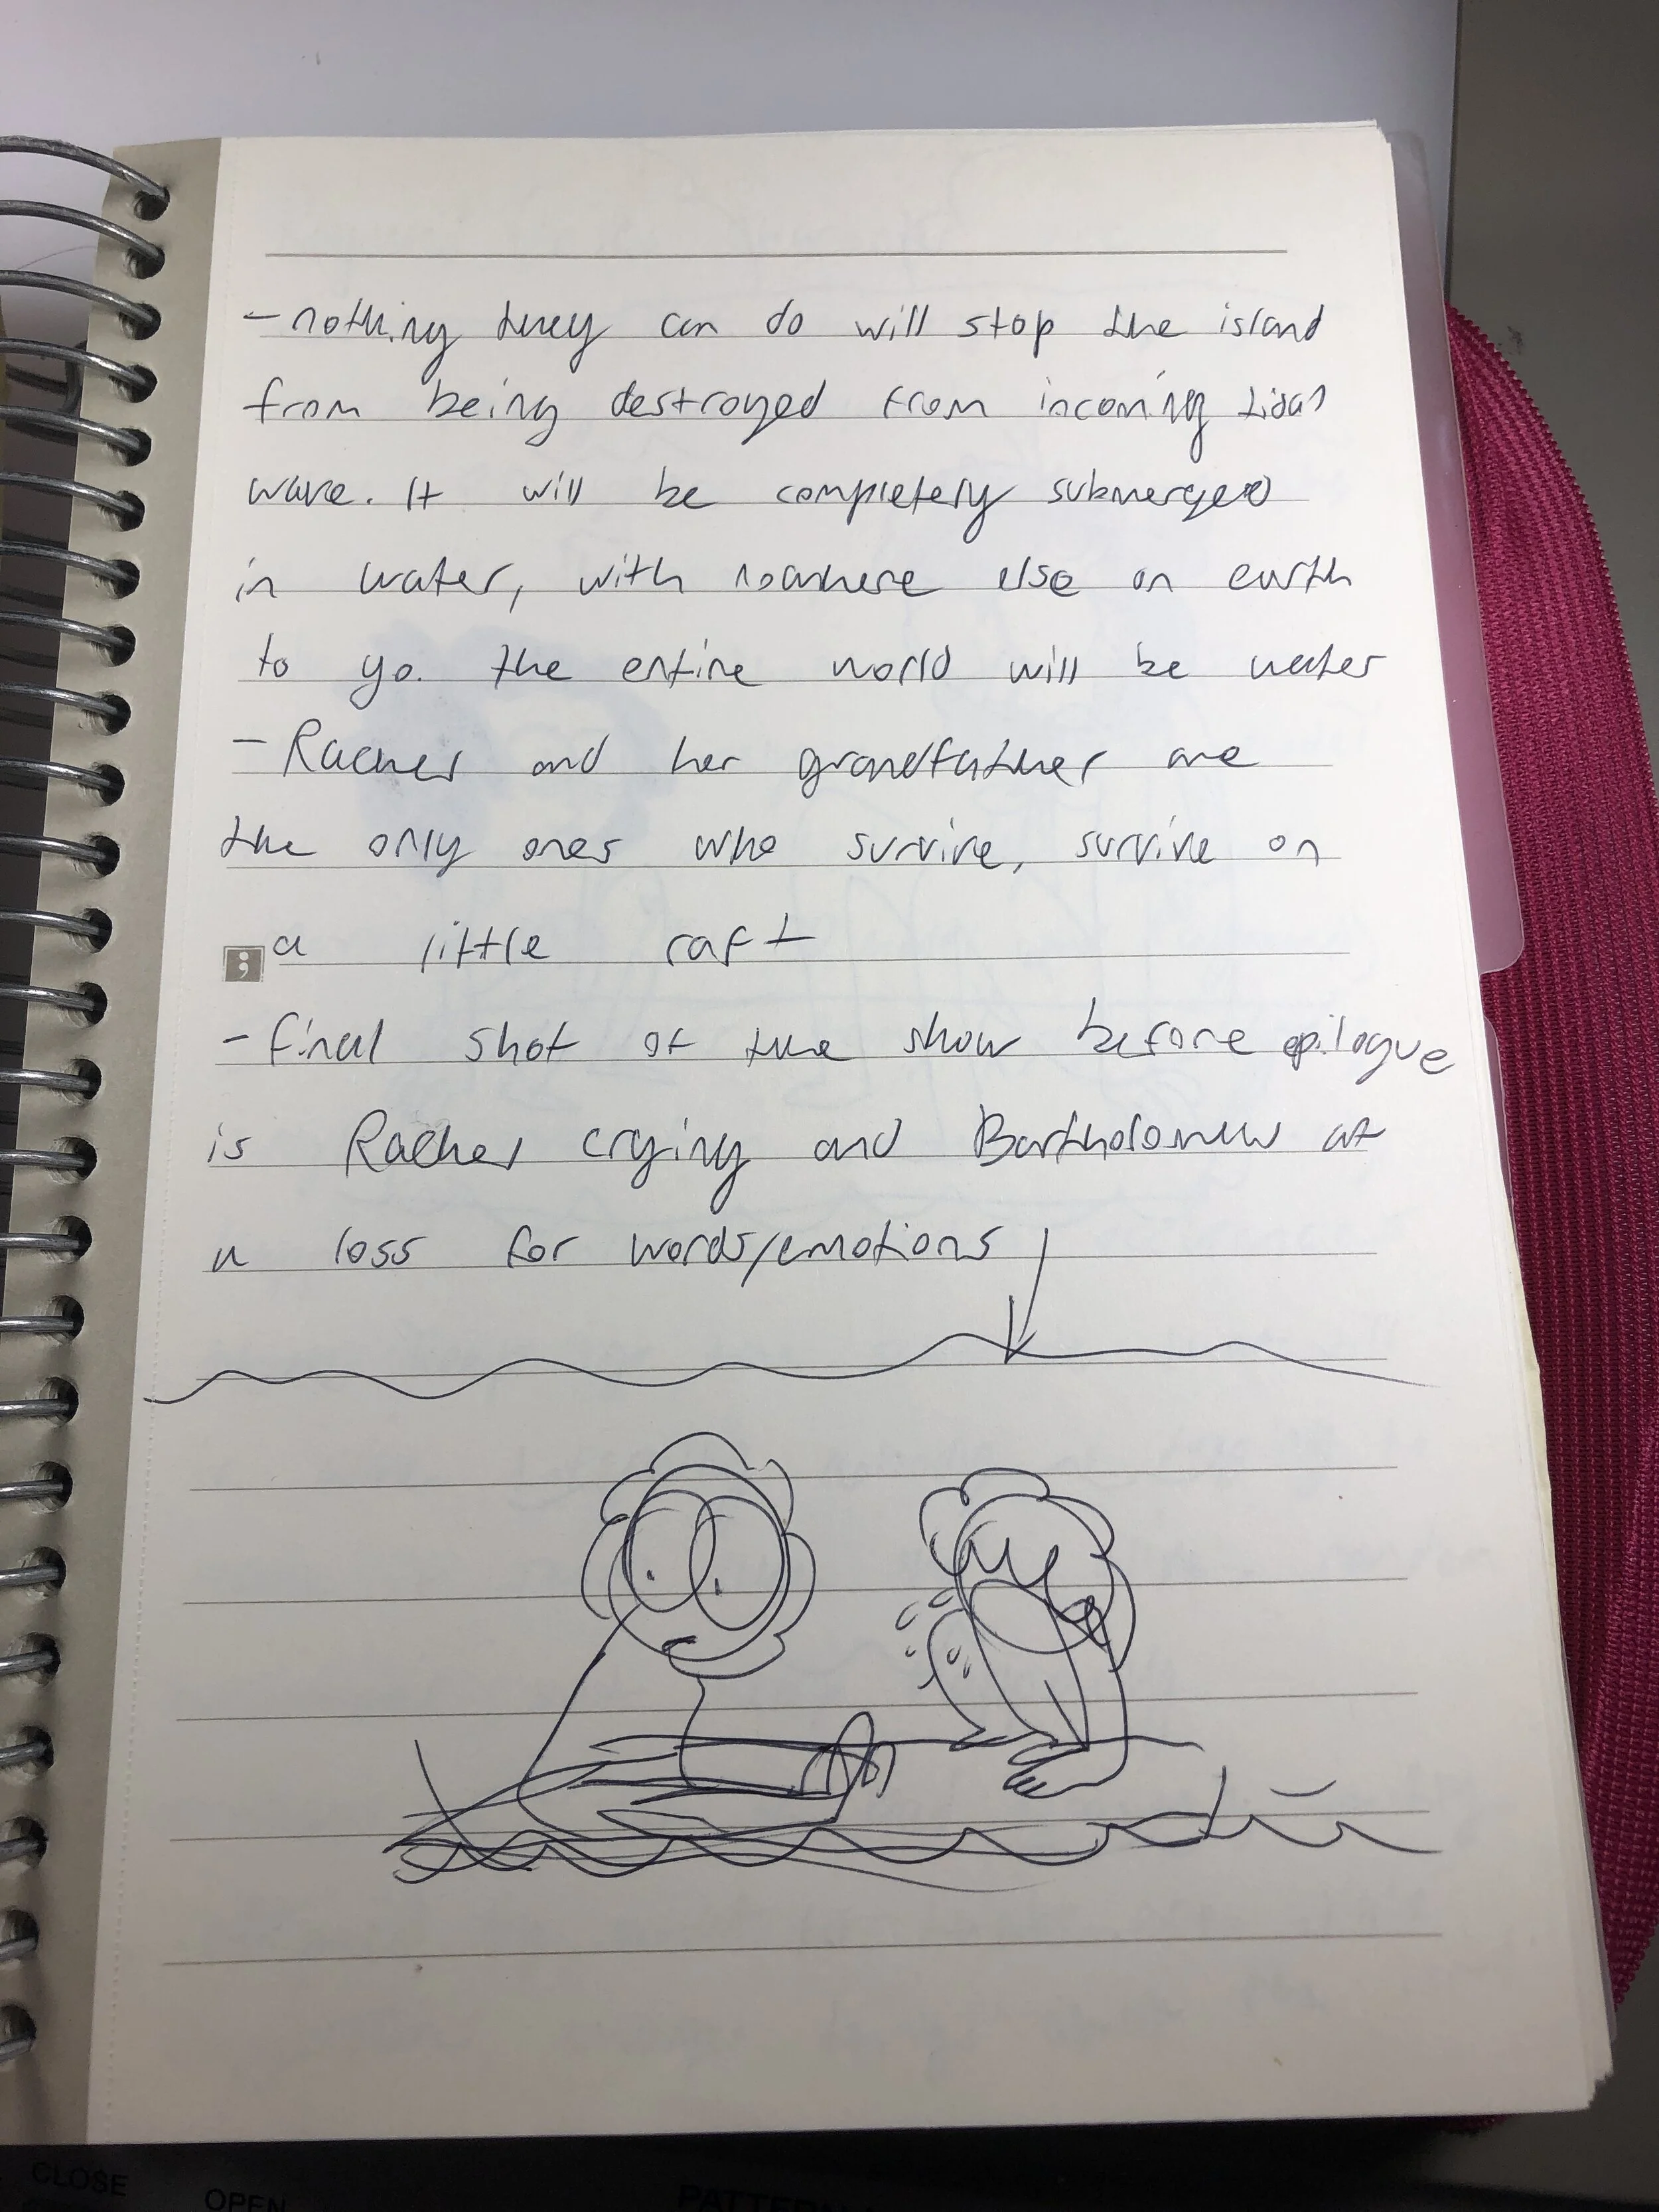 - nothing they can do will stop the island
from being destroyed from incoming tidal
wave. It will be completely submerged
in water, with nowhere else on earth
to go. the entire world will be water
- Rachel and her grandfather are
the only ones who survive, survive on
a little raft
- final shot of the show before epilogue
is Rachel crying and Bartholomew at
a loss for words/emotions
CLOSE
OPEN
PATTERN